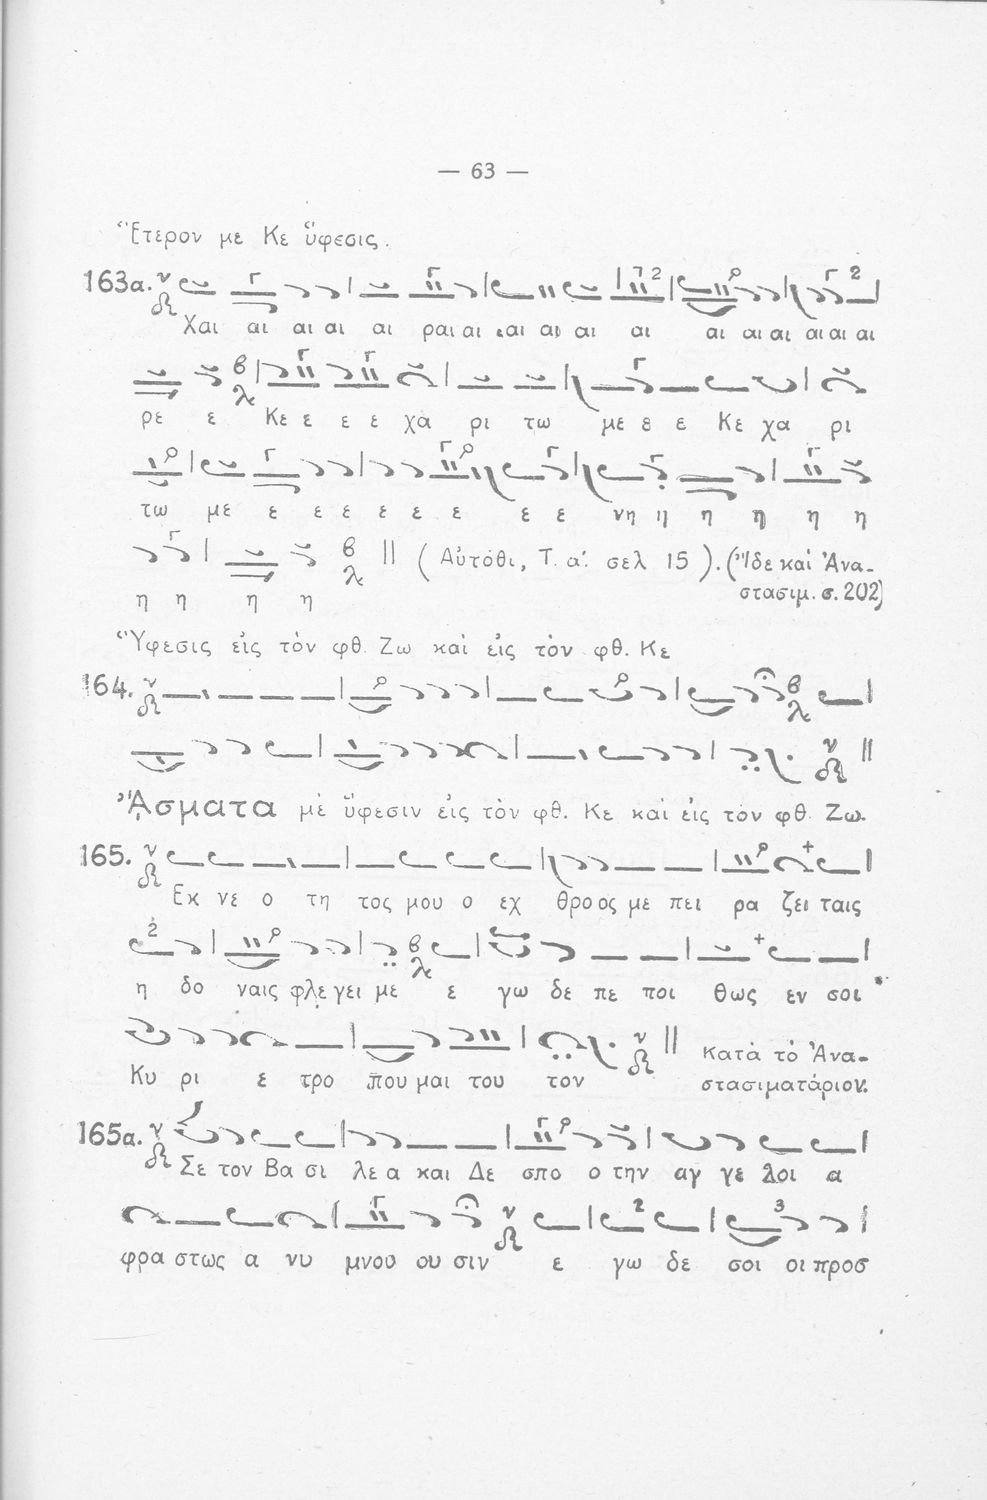 — 63 —
Ἕτερον με Κε ὕφεσις.
163α.
Χαι αι αι αι αι ραι αι αι αι αι αι αι αι αι αι αι αι
ρε ε Κε ε ε ε χα ρι τω με ε ε Κε χα ρι
τω με ε ε ε ε ε ε ε ε νη η η η η η
η η η η (Αὐτόθι, Τ. α΄. σελ 15). (Ἴδε καὶ Ἀνα-
στασιμ. σ. 202)
Ὕφεσις εἰς τὸν φθ. Ζω καὶ εἰς τὸν φθ. Κε
164.
ᾌσματα μὲ ὕφεσιν εἰς τὸν φθ. Κε καὶ εἰς τὸν φθ. Ζω.
165.
Εκ νε ο τη τος μου ο εχ θρο ος με πει ρα ζει ταις
η δο ναις φλε γει με ε γω δε πε ποι θως εν σοι
Κυ ρι ε τρο που μαι του τον κατὰ τὸ Ἀνα-
στασιματάριον.
165α.
Σε τον Βα σι λε α και Δε σπο ο την αγ γε λοι α
φρα στως α νυ μνου ου σιν ε γω δε σοι οι προσ